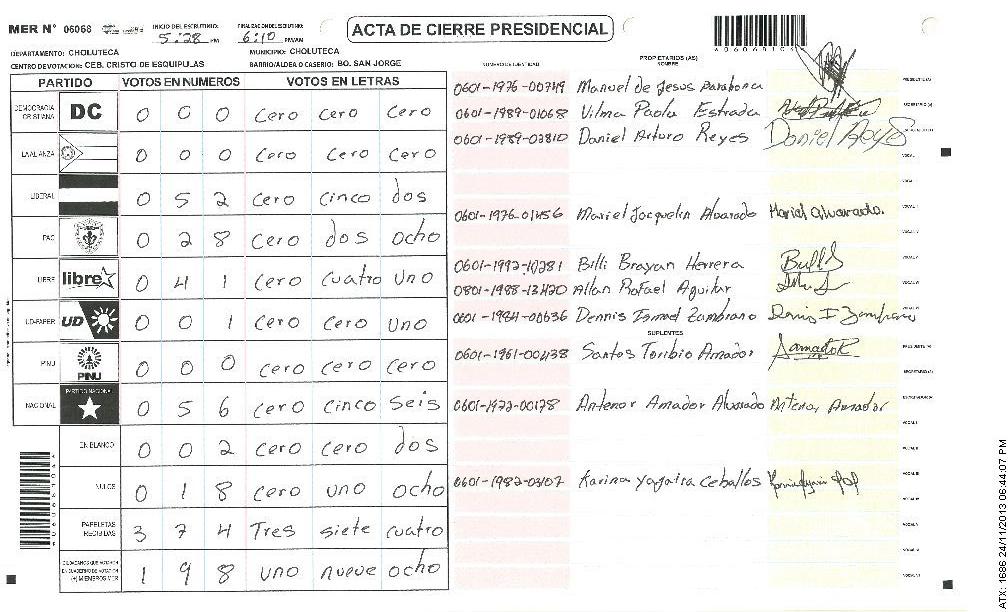 MER N° 06068 INICIO DEL ESCRUTINIO: 5:28 PM FINALIZACION DEL ESCRUTINIO: 6:10 PM/AM ACTA DE CIERRE PRESIDENCIAL
DEPARTAMENTO: CHOLUTECA MUNICIPIO: CHOLUTECA
CENTRO DE VOTACION: CEB. CRISTO DE ESQUIPULAS BARRIO/ALDEA O CASERIO: BO. SAN JORGE
NUMERO DE IDENTIDAD PROPIETARIOS (AS) NOMBRE
PARTIDO VOTOS EN NUMEROS VOTOS EN LETRAS
DEMOCRACIA CRISTIANA DC 0 0 0 cero cero cero
LA ALIANZA 0 0 0 cero cero cero
LIBERAL 0 5 2 cero cinco dos
PAC 0 2 8 cero dos ocho
LIBRE libre 0 4 1 cero cuatro uno
UD-FAPER UD 0 0 1 cero cero uno
PINU PINU 0 0 0 cero cero cero
NACIONAL PARTIDO NACIONAL 0 5 6 cero cinco seis
EN BLANCO 0 0 2 cero cero dos
NULOS 0 1 8 cero uno ocho
PAPELETAS RECIBIDAS 3 7 4 Tres siete cuatro
CIUDADANOS QUE VOTARON EN CUADERNO DE VOTACION (+) MIEMBROS MER 1 9 8 uno nueve ocho
0601-1976-00749 Manuel de Jesus
0601-1989-01068 Vilma Paola Estrada
0601-1989-03810 Daniel Arturo Reyes Daniel Reyes
0601-1976-01456 Mariel Jacquelin Alvarado Mariel Alvarado.
Billi Brayan Herrera
Allan Rafael Aguilar
0601-1984-00636 Dennis Ismael Zambrano
SUPLENTES
0601-1961-00438 Santos Toribio Amador
0601-1972-00178 Antenor Amador Alvarado Antenor Amador
0601-1982-03107 Karina Yagaira Ceballos
ATX: 1686 24/11/2013 06:44:07 PM